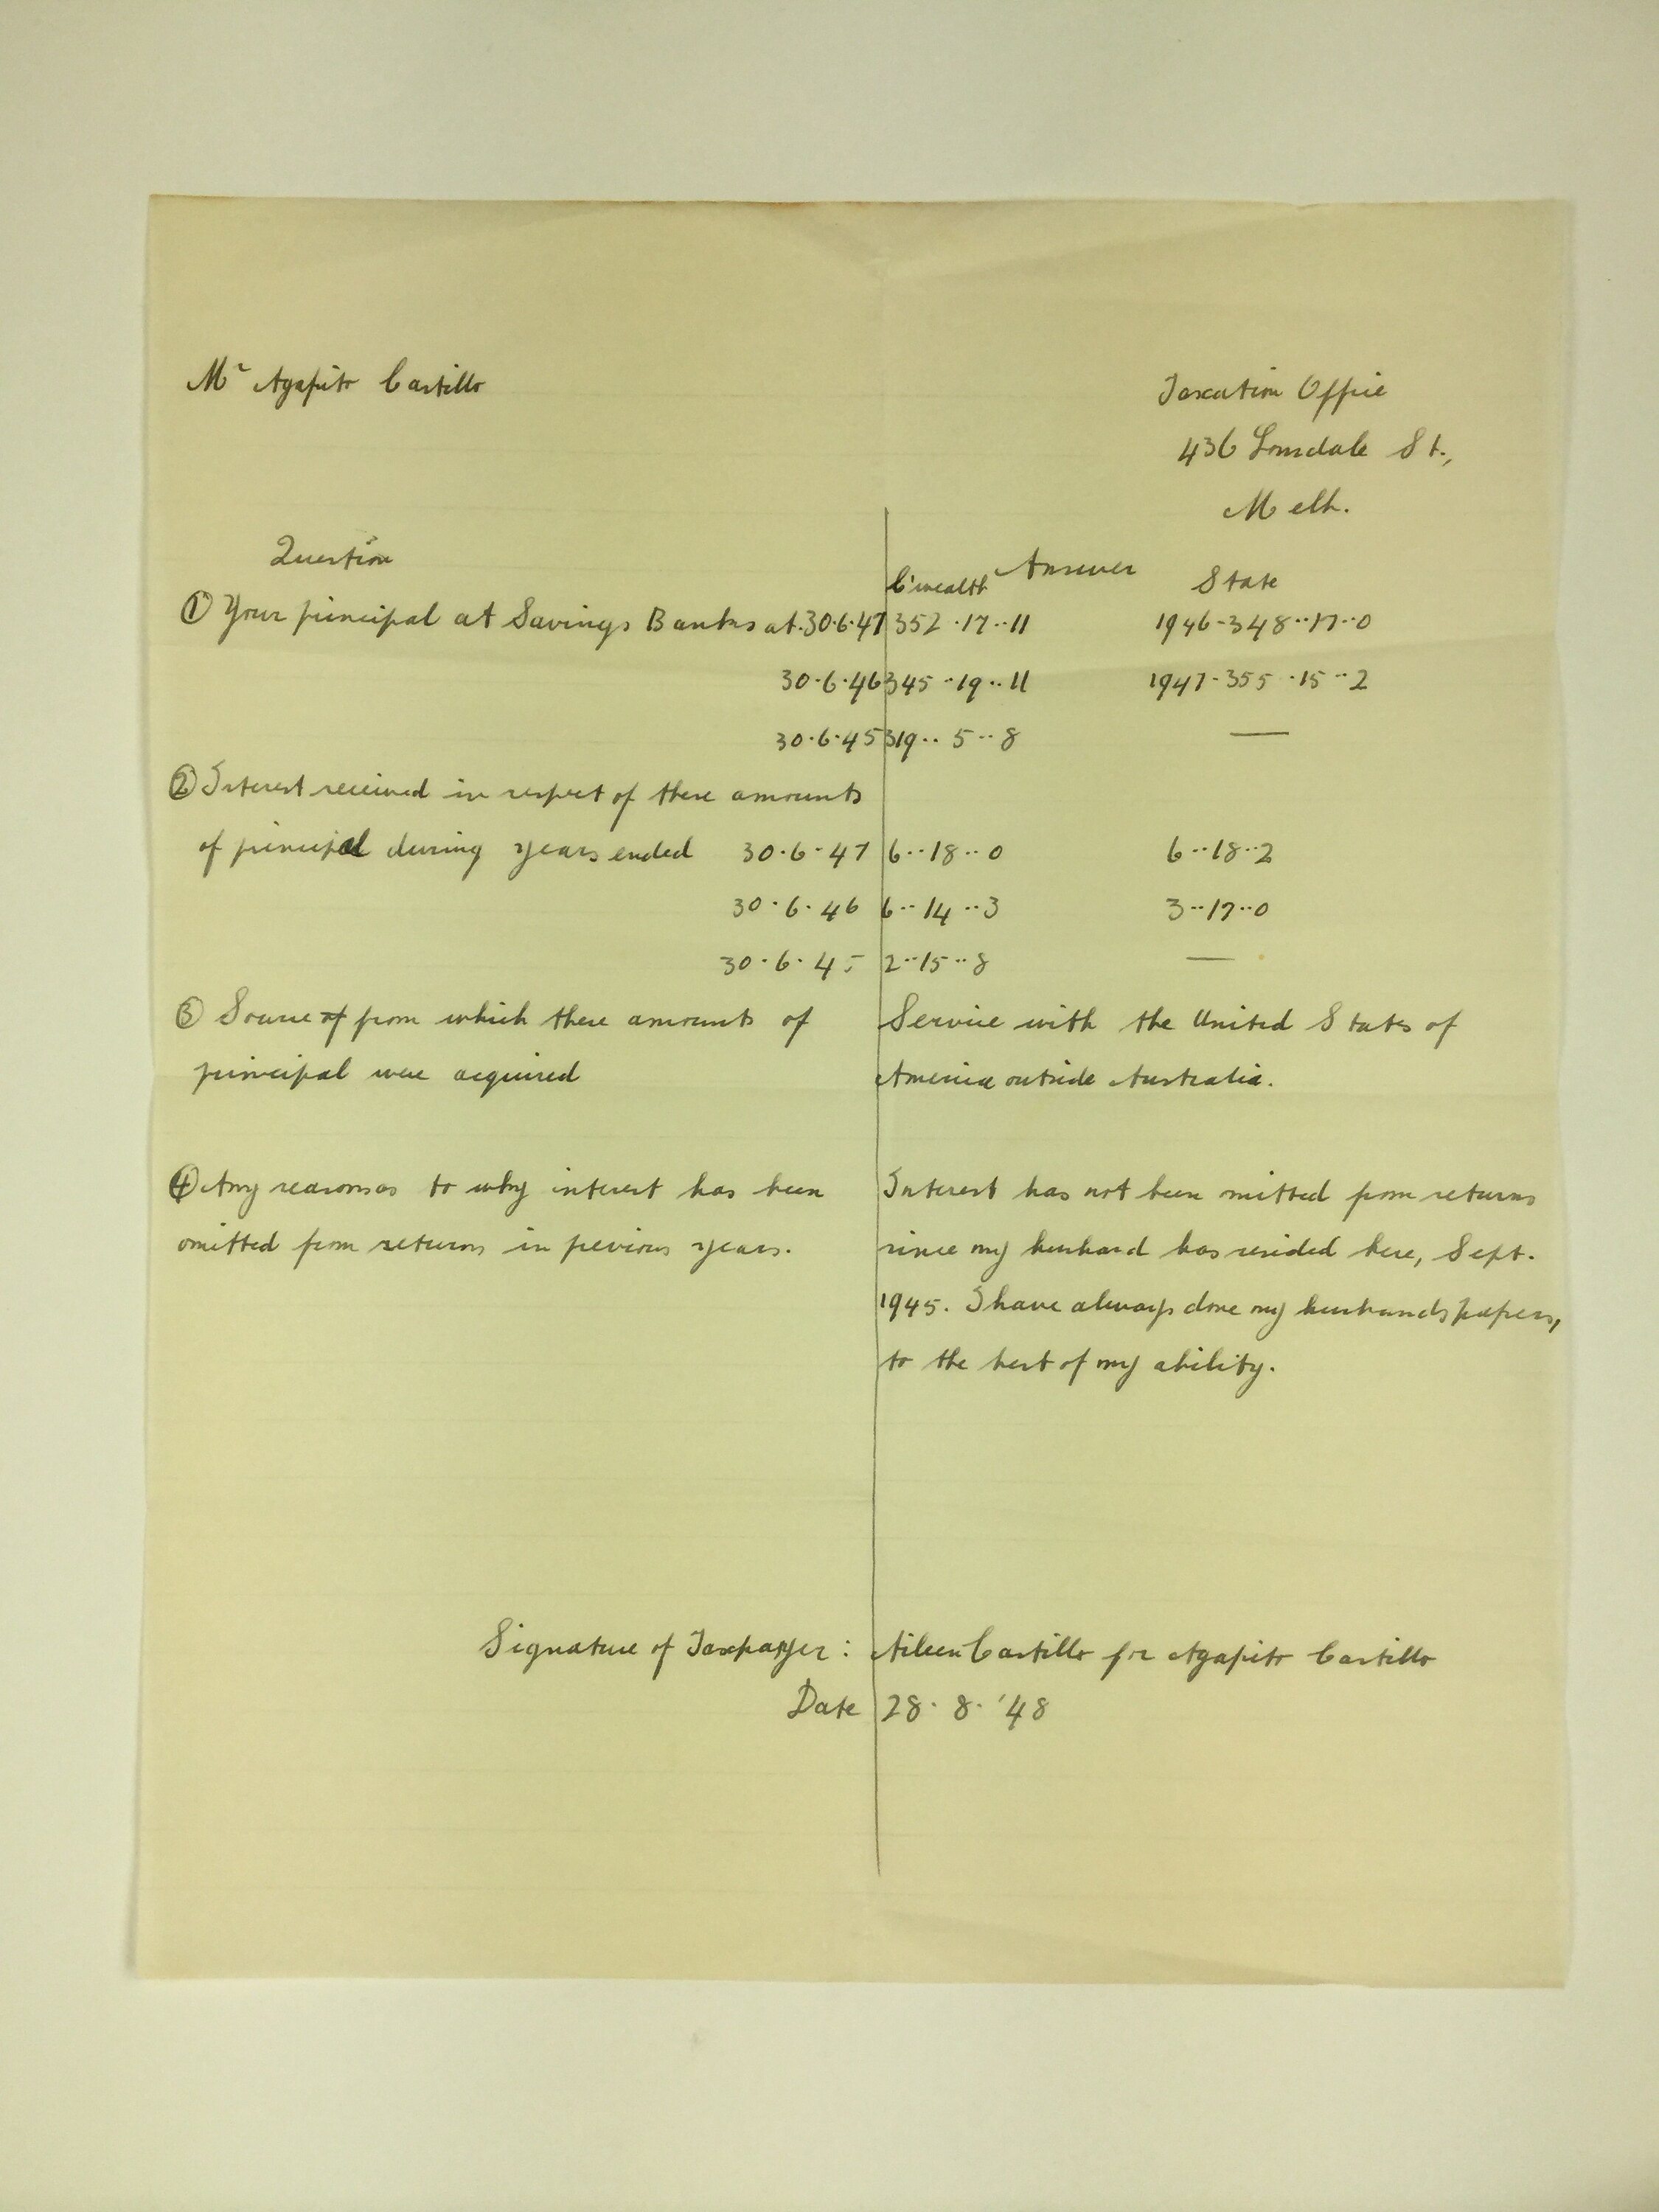 Mr Agapito Castillo
Taxation Office
436 Lonsdale St.,
Melb.
Question
Answer
C'wealth State
① Your principal at Savings Banks at 30.6.47 352.17..11 1946-348..17..0
30.6.46 345..19..11 1947-355.15..2
30.6.45 319..5..8 —
② Interest received in respect of these amounts
of principal during years ended 30.6.47 6..18..0 6..18..2
30.6.46 6..14..3 3..17..0
30.6.45 2..15..8 —
③ Source of from which these amounts of
principal were acquired
Service with the United States of
America outside Australia.
④ Any reason as to why interest has been
omitted from returns in previous years.
Interest has not been omitted from returns
since my husband has resided here, Sept.
1945. I have always done my husbands papers,
to the best of my ability.
Signature of Taxpayer: Aileen Castillo for Agapito Castillo
Date 28.8.'48